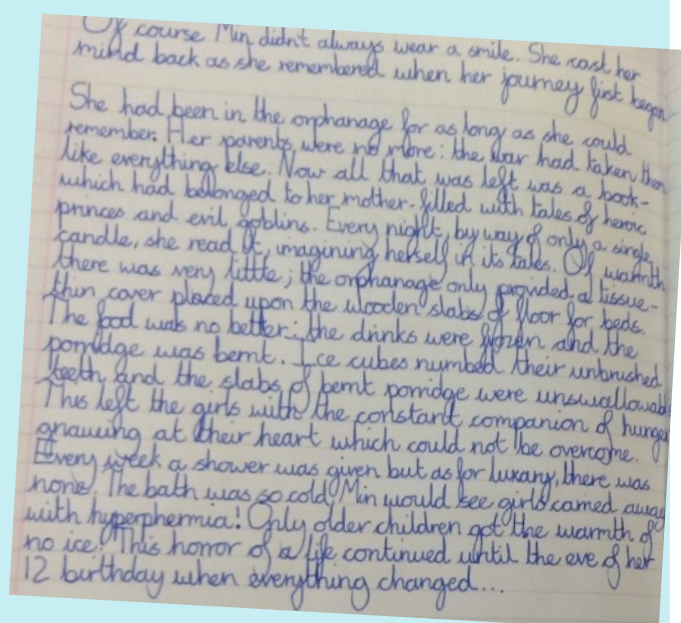 Of course Min didn't always wear a smile. She cast her
mind back as she remembered when her journey first began
She had been in the orphanage for as long as she could
remember. Her parents were no more: the war had taken them
like everything else. Now all that was left was a book-
which had belonged to her mother-filled with tales of heroic
princes and evil goblins. Every night, by way of only a single
candle, she read it, imagining herself in its tales. Of warmth
there was very little; the orphanage only provided a tissue-
thin cover placed upon the wooden slabs of floor for beds.
The food was no better: the drinks were frozen and the
porridge was bernt. Ice cubes numbed their unbrushed
teeth and the slabs of bernt porridge were unswallowable
This left the girls with the constant companion of hunger
gnawing at their heart which could not be overcome.
Every week a shower was given but as for luxary, there was
none. The bath was so cold Min would see girls carried away
with hyperphermia! Only older children got the warmth of
no ice! This horror of a life continued until the eve of her
12 birthday when everything changed...